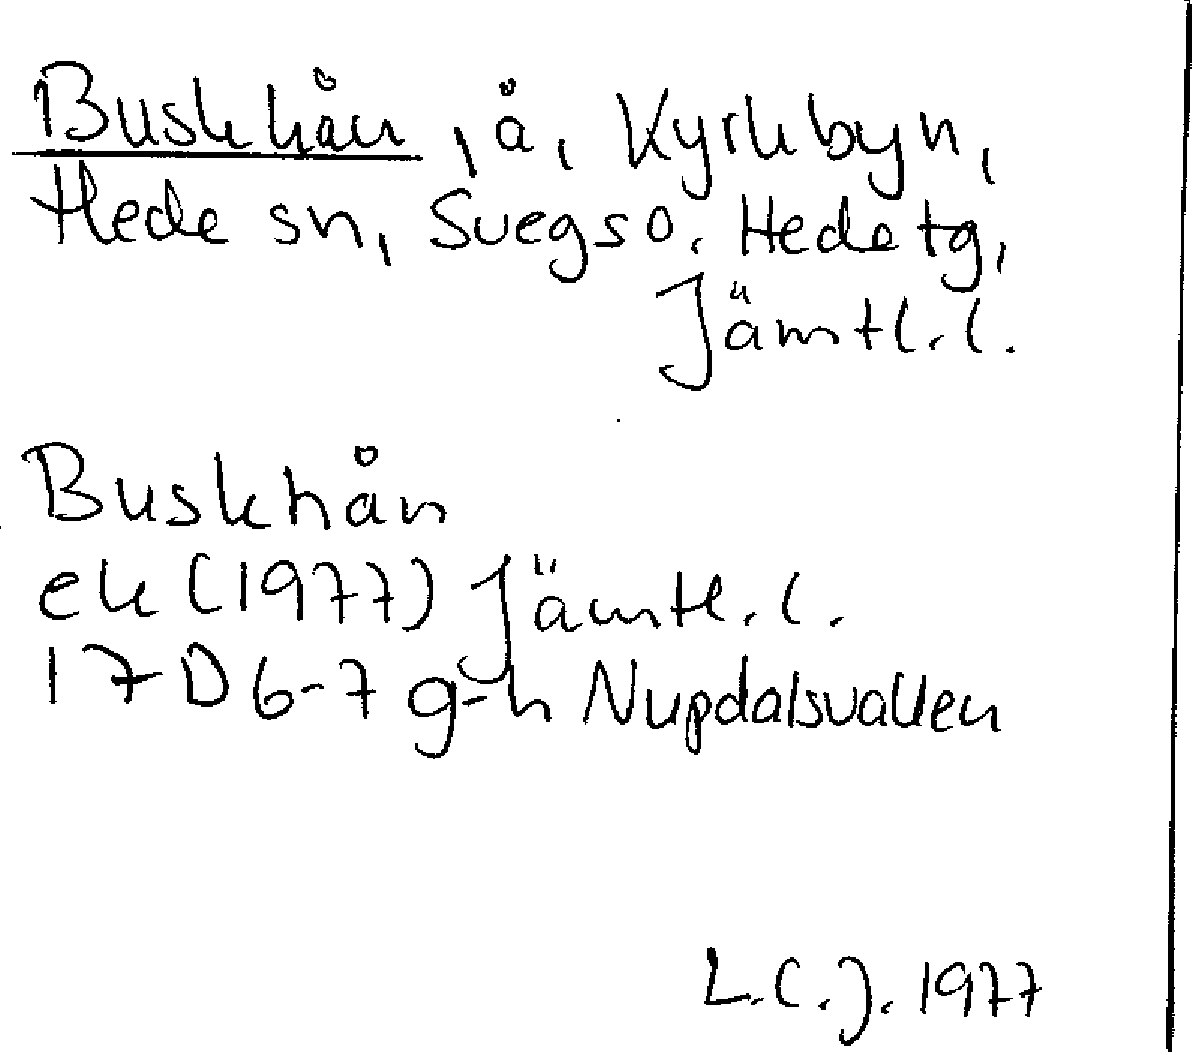 Buskhån, å, Kyrkbyn,
Hede sn, Svegs o. Hede tg,
Jämtl. l.
Buskhån
ek (1977) Jämtl. l.
17D 6-7 g-h Nupdalsvallen
L.C.J. 1977